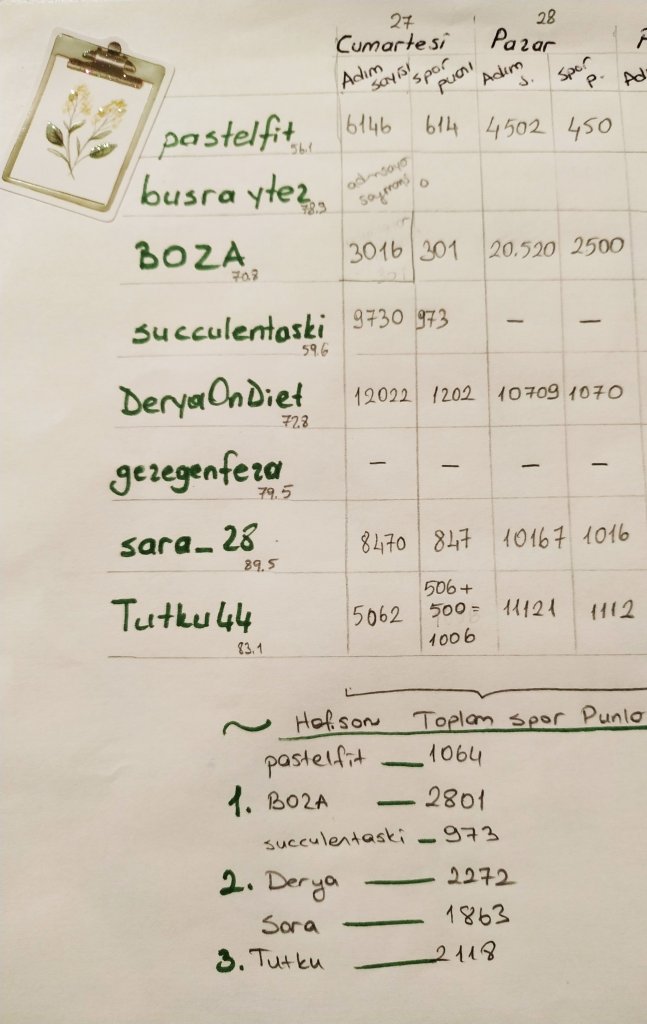 27 28
Cumartesi Pazar
Adım sayısı spor puanı Adım s. spor p. Ad
pastelfit 6146 614 4502 450
56.1
busra ytez adımsayar saymamış 0
78.9
BOZA 3016 301 20.520 2500
70.8
succulentaski 9730 973 — —
59.6
DeryaOnDiet 12022 1202 10709 1070
72.8
gezegenfeza — — — —
79.5
sara_28 8470 847 10167 1016
89.5
Tutku44 5062 506+ 500= 1006 11121 1112
83.1
~ Haf.son Toplam spor Punla
pastelfit — 1064
1. BOZA — 2801
succulentaski — 973
2. Derya — 2272
Sara — 1863
3. Tutku — 2118